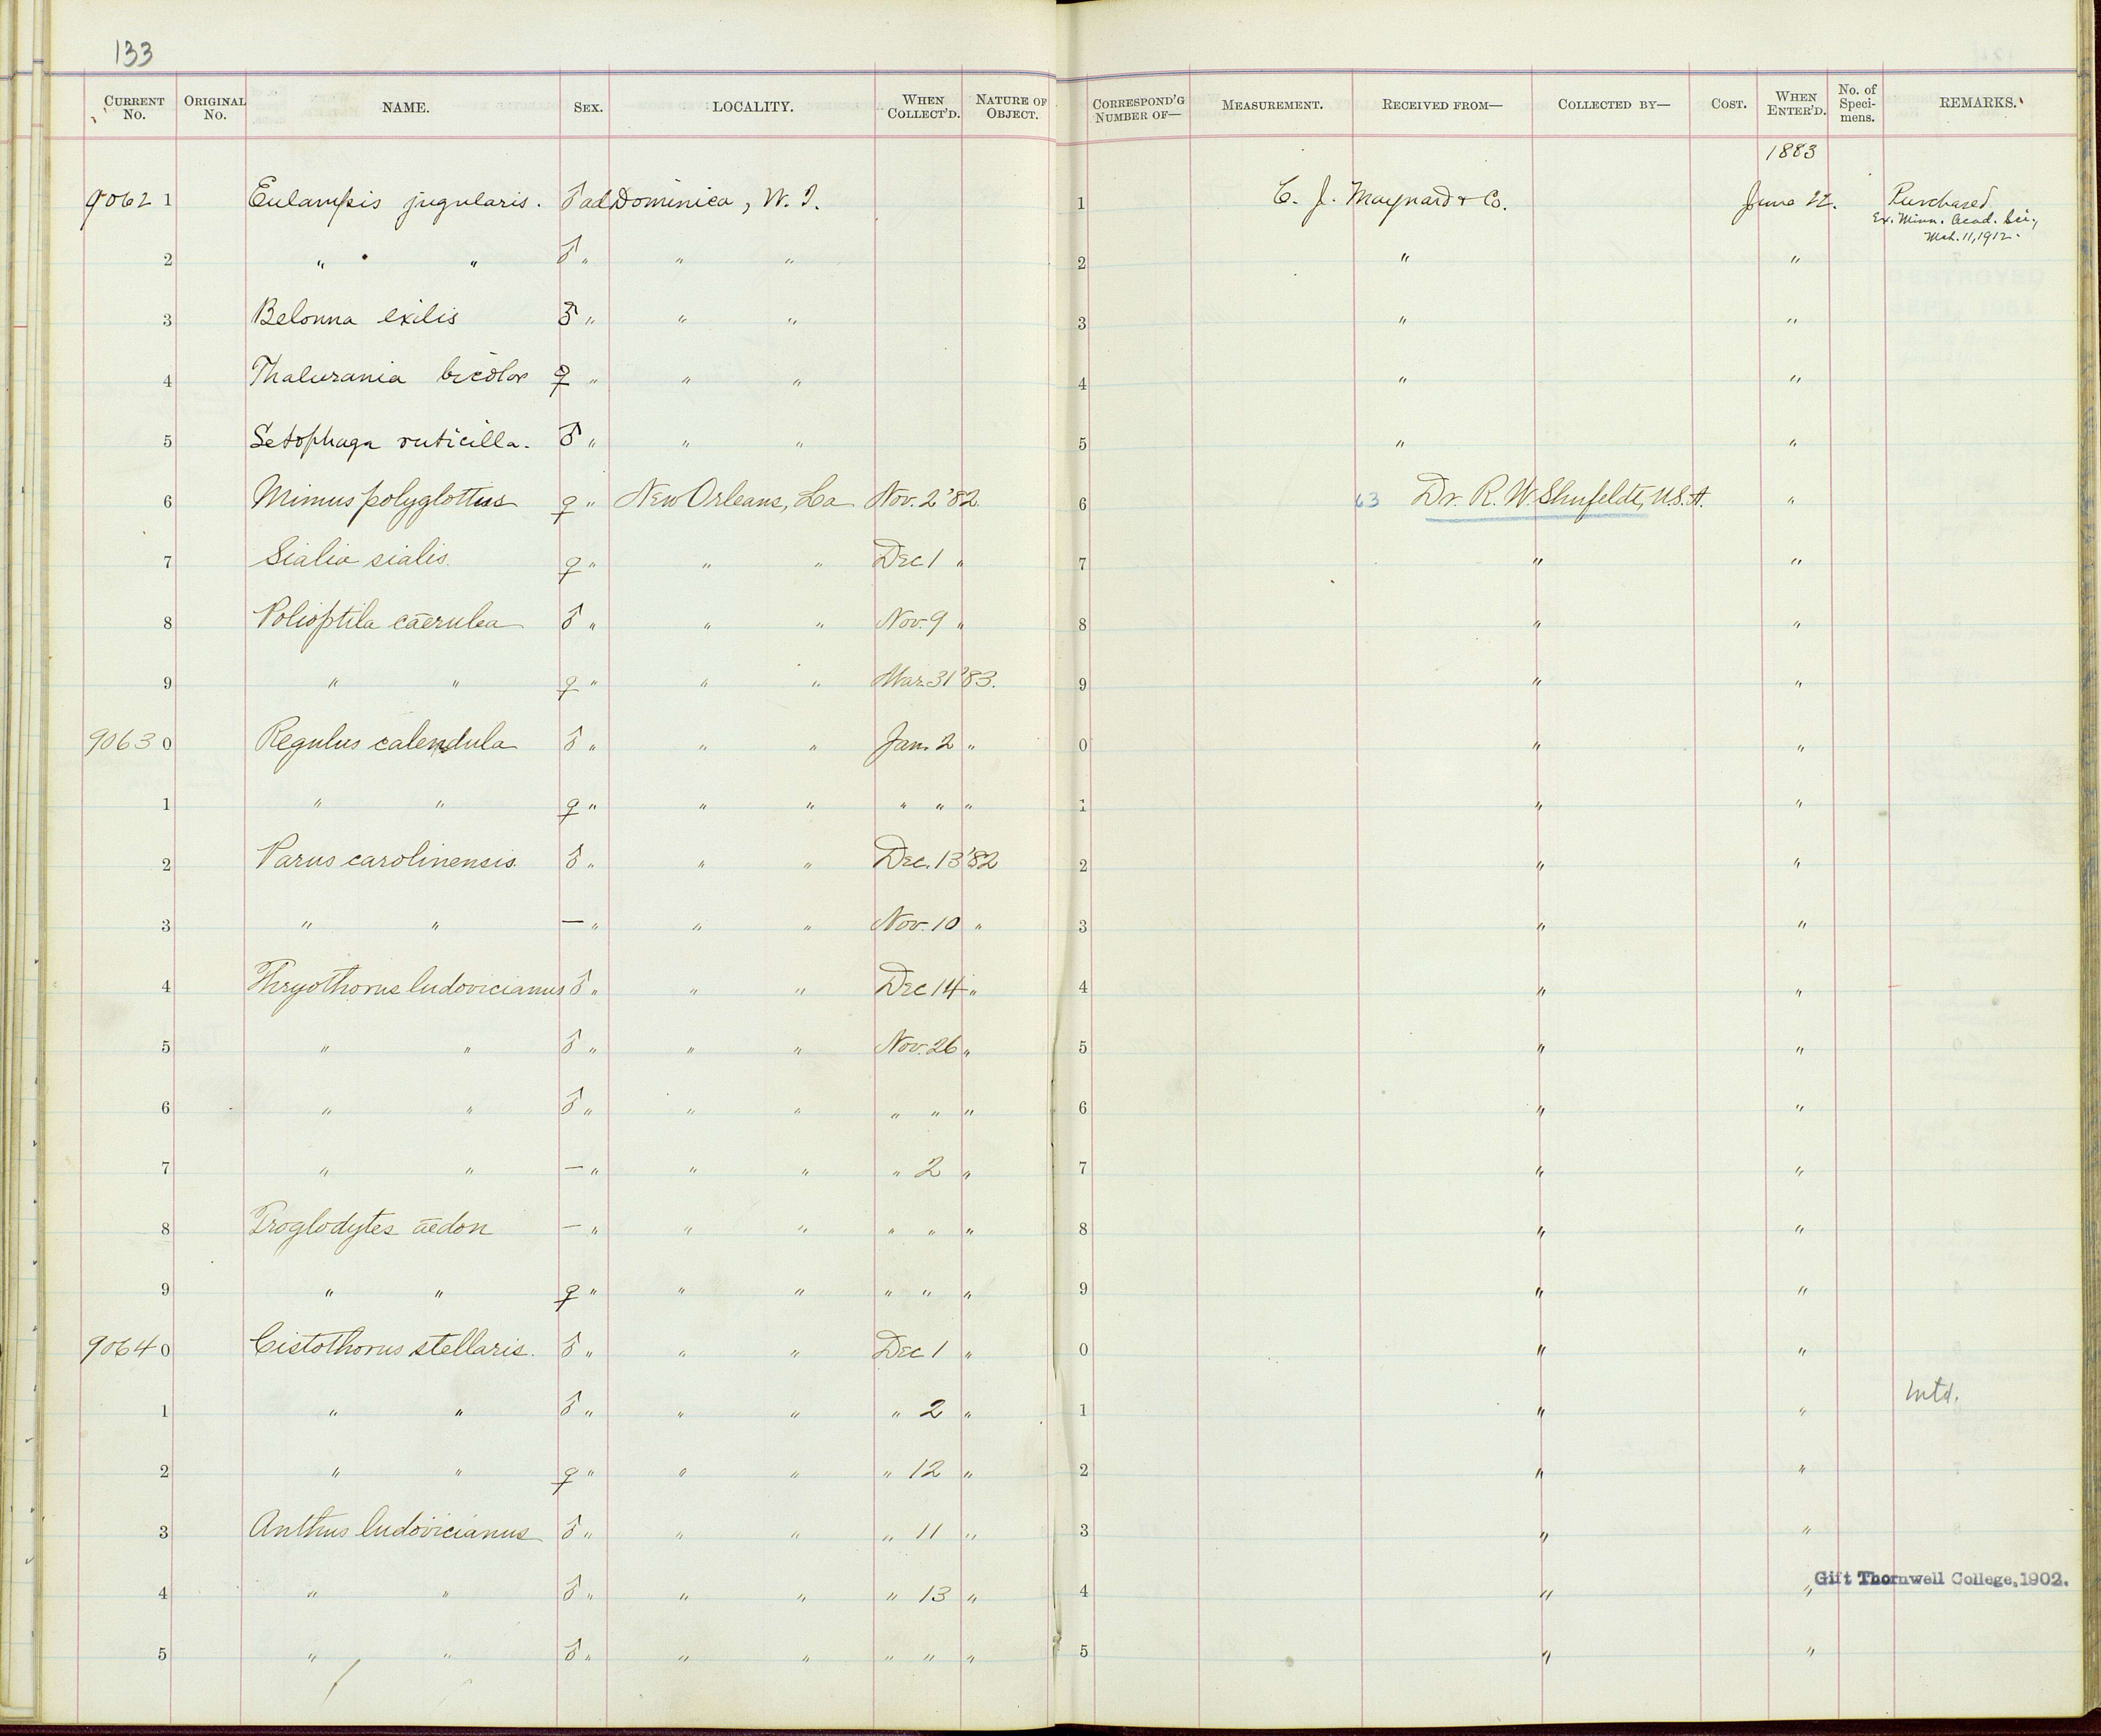 133
CURRENT No. ORIGINAL No. NAME. SEX. LOCALITY. WHEN COLLECT'D. NATURE OF OBJECT. CORRESPOND'G NUMBER OF— MEASUREMENT. RECEIVED FROM— COLLECTED BY— COST. WHEN ENTER'D. No. of Speci-mens. REMARKS.
1883
9062 1 Eulampis jugularis. ♂ ad Dominica, W. I. 1 C. J. Maynard & Co. June 22. Purchased
Ex. Minn. Acad. Sci.,
Mch. 11, 1912.
2 " " ♂ " " " 2 " "
3 Belonna exilis ♂ " " " 3 " "
4 Thalurania bicolor ♀ " " " 4 " "
5 Setophaga ruticilla. ♂ " " " 5 " "
6 Mimus polyglottus ♀ " New Orleans, La Nov. 2 '82. 6 63 Dr. R. W. Shufeldt, U.S.A. "
7 Sialia sialis. ♀ " " " Dec 1 " 7 " "
8 Polioptila caerulea ♂ " " " Nov. 9 " 8 " "
9 " " ♀ " " " Mar. 31 '83. 9 " "
9063 0 Regulus calendula ♂ " " " Jan. 2 " 0 " "
1 " " ♀ " " " " " " 1 " "
2 Parus carolinensis. ♂ " " " Dec. 13 '82 2 " "
3 " " — " " " Nov. 10 " 3 " "
4 Thryothorus ludovicianus ♂ " " " Dec 14 " 4 " "
5 " " ♂ " " " Nov. 26 " 5 " "
6 " " ♂ " " " " " " 6 " "
7 " " — " " " " 2 " 7 " "
8 Troglodytes aedon — " " " " " " 8 " "
9 " " ♀ " " " " " " 9 " "
9064 0 Cistothorus stellaris. ♂ " " " Dec 1 " 0 " "
1 " " ♂ " " " " 2 " 1 " " Mtd.
2 " " ♀ " " " " 12 " 2 " "
3 Anthus ludovicianus ♂ " " " " 11 " 3 " "
4 " " ♂ " " " " 13 " 4 " " Gift Thornwell College, 1902.
5 " " ♂ " " " " " " 5 " "